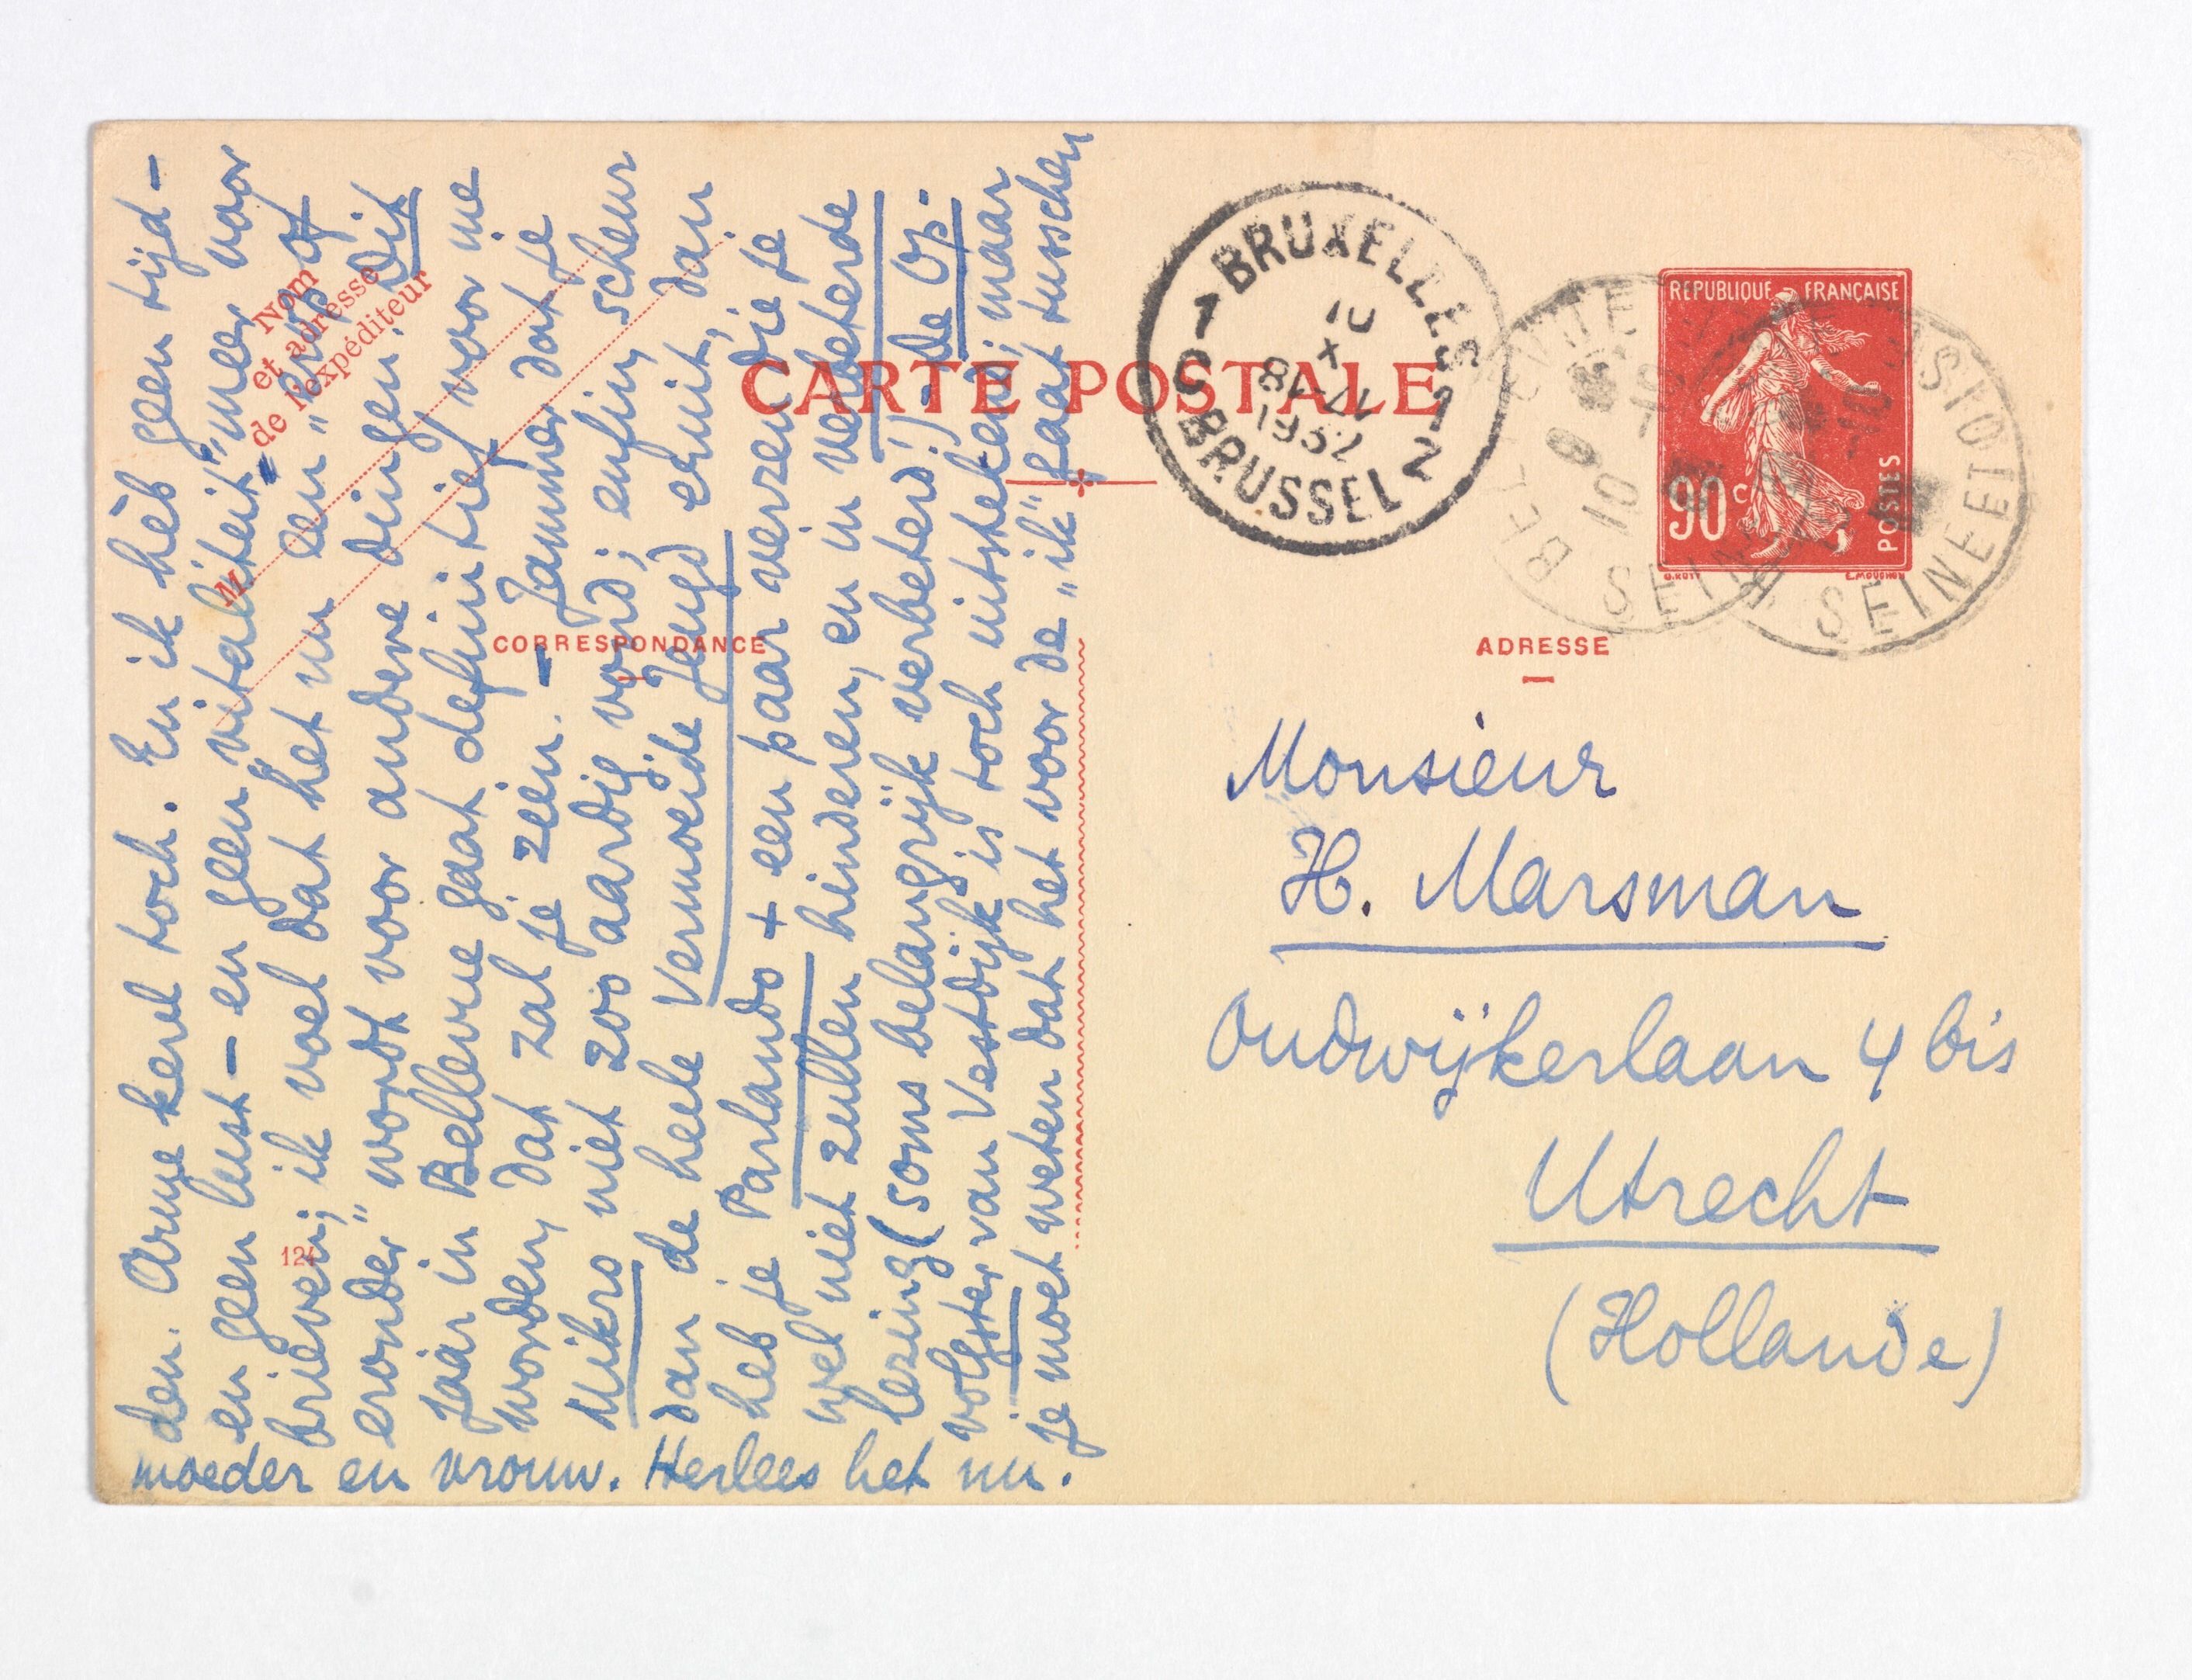 CARTE POSTALE
Nom
et adresse
de l'expéditeur
CORRESPONDANCE
den. Arme kerel toch. En ik hèb geen tijd -
en geen lust - en geen „vitaliteit" meer voor
brieven; ik voel dat het nu een „erop of
eronder" wordt voor andere dingen. Dit
jaar in Bellevue gaat definitief voor me
worden, dat zal je zien. - Jammer dat je
Mikro niet zoo aardig vond; enfin, scheur
dan de heele Vermoeide Jeugd eruit, dan
heb je Parlando + een paar verzen die je
wel niet zullen hinderen, en in verbeterde
lezing (soms belangrijk verbeterd!) - De Op-
volgster van Vestdijk is toch uitstekend; maar
je moet weten dat het voor de „ik" gaat tusschen
moeder en vrouw. Herlees het nu.
124
1 BRUXELLES 1
10
X
1932
2 BRUSSEL 2
REPUBLIQUE FRANÇAISE
90 c
POSTES
O. ROTY
E. MOUCHON
SEINE ET OISE
ADRESSE
Monsieur
H. Marsman
Oudwijkerlaan 4 bis
Utrecht
(Hollande)